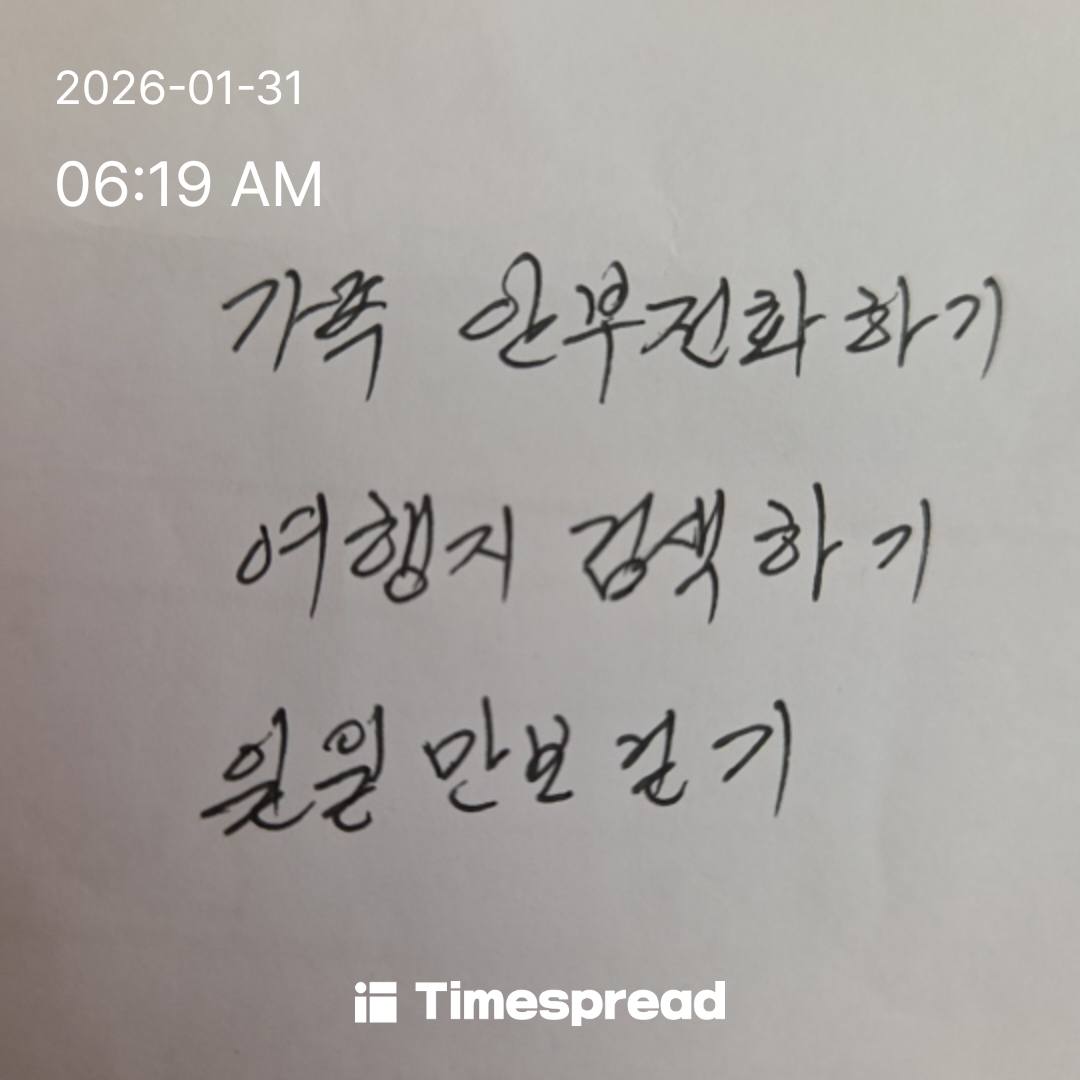 2026-01-31
06:19 AM
가족 안부전화하기
여행지 검색하기
만보걷기
Timespread